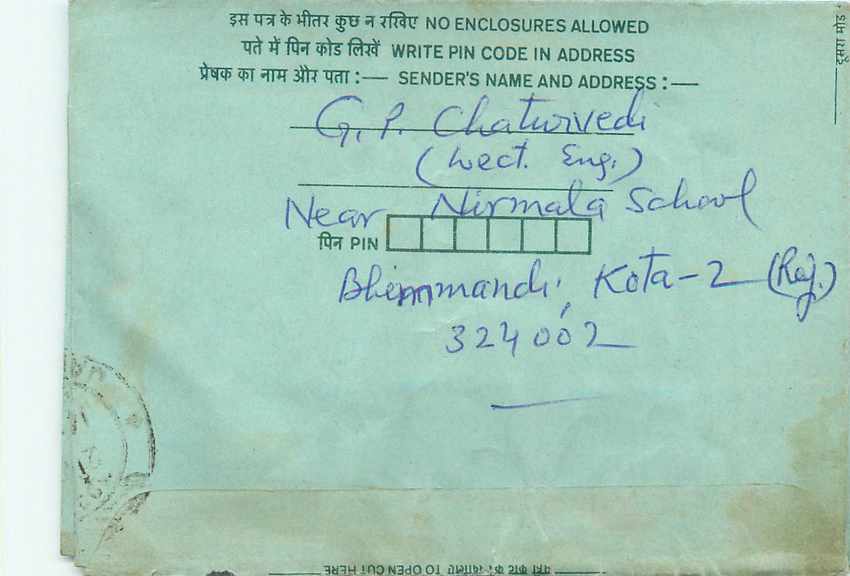 इस पत्र के भीतर कुछ न रखिए NO ENCLOSURES ALLOWED
पते में पिन कोड लिखें WRITE PIN CODE IN ADDRESS
प्रेषक का नाम और पता :— SENDER'S NAME AND ADDRESS :—
G. P. Chaturvedi
(Lect. Eng.)
Near Nirmala School
पिन PIN
Bhimmandi, Kota-2 (Raj.)
324002
दूसरा मोड़
TO OPEN CUT HERE